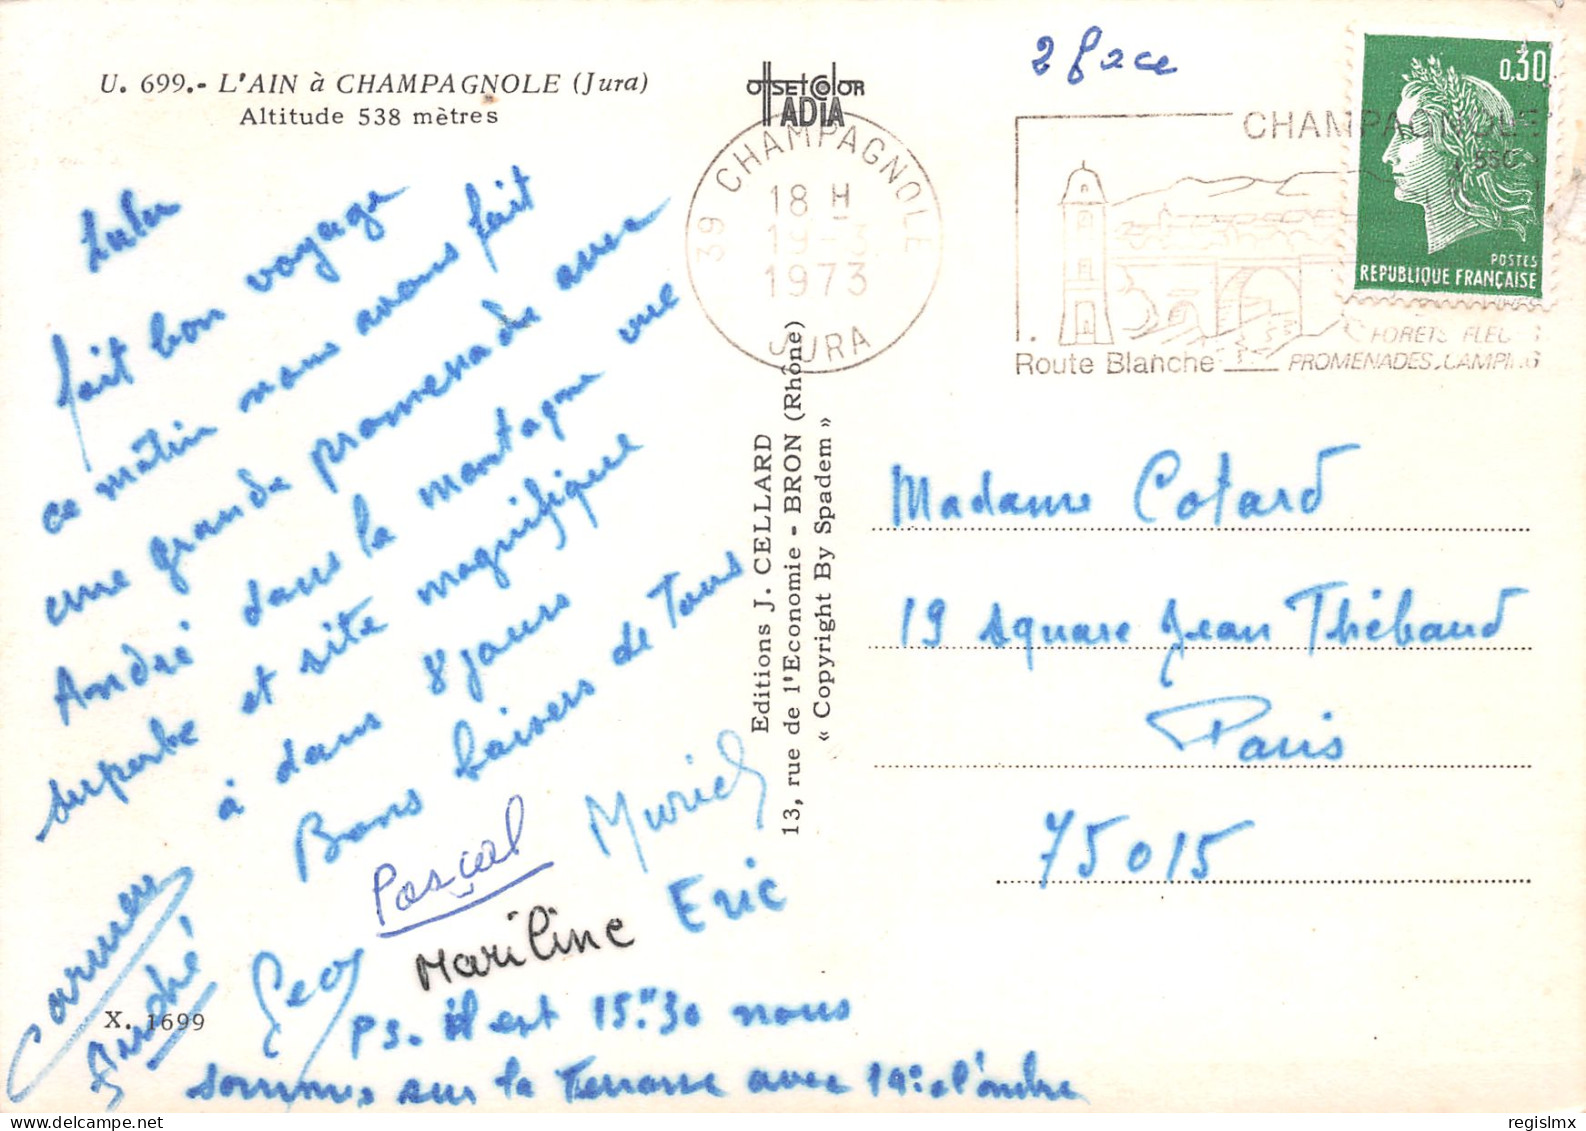 U. 699.- L'AIN à CHAMPAGNOLE (Jura)
Altitude 538 mètres
OffsetColor
ADIA
2 face
0,30
POSTES
REPUBLIQUE FRANÇAISE
39 CHAMPAGNOLE
18 H
19-3
1973
JURA
CHAMPAGNOLE
Route Blanche
FORETS FLEU
PROMENADES.CAMPING
Lulu
fait bon voyage
ce mâtin nous avons fait
une grande promenade avec
André dans la montagne vue
superbe et site magnifique
à dans 8 jours
Bons baisers de Tous
Carmen
André
Geo
Pascal
Muriel
Mariline
Eric
PS. il est 15."30 nous
sommes sur la Terrasse avec 19° a l'ombre
X. 1699
Editions J. CELLARD
13, rue de l'Economie - BRON (Rhône)
« Copyright By Spadem »
Madame Cotard
19 square Jean Thébaud
Paris
75015
regislmx